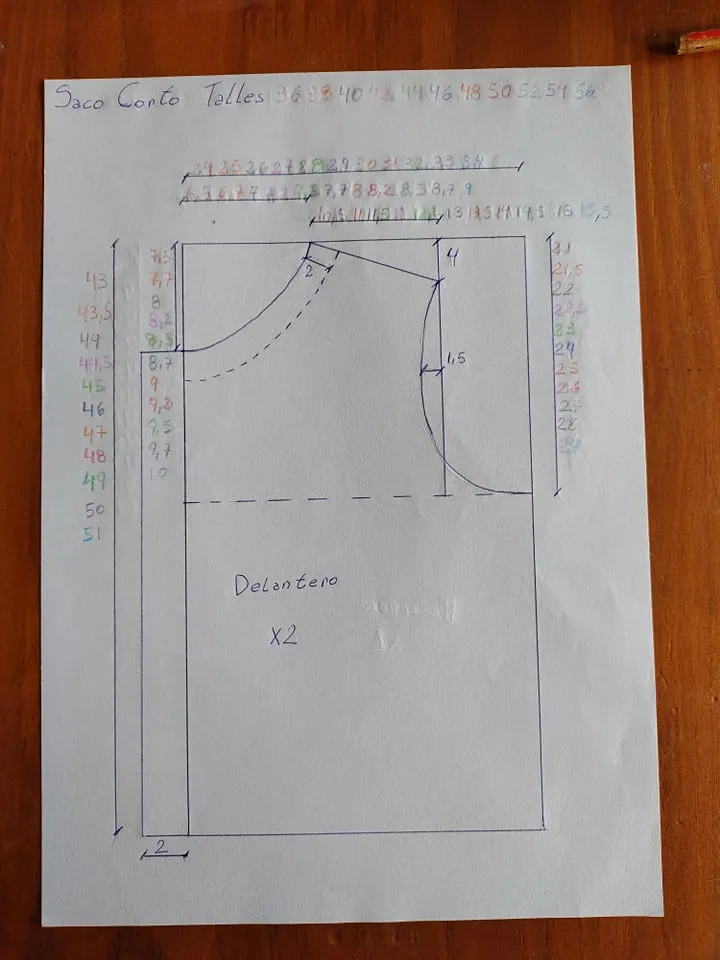 Saco Corto Talles 36 38 40 42 44 46 48 50 52 54 56
24 25 26 27 28 29 30 31 32 33 34
7,7 8 8,2 8,5 8,7 9
13 13,5 14 14,5 15 15,5
43
43,5
44
44,5
45
46
47
48
49
50
51
7,5
7,7
8
8,2
8,5
8,7
9
9,2
9,5
9,7
10
2
4
1,5
21
21,5
22
22,5
23
24
25
26
27
28
29
Delantero
X2
2